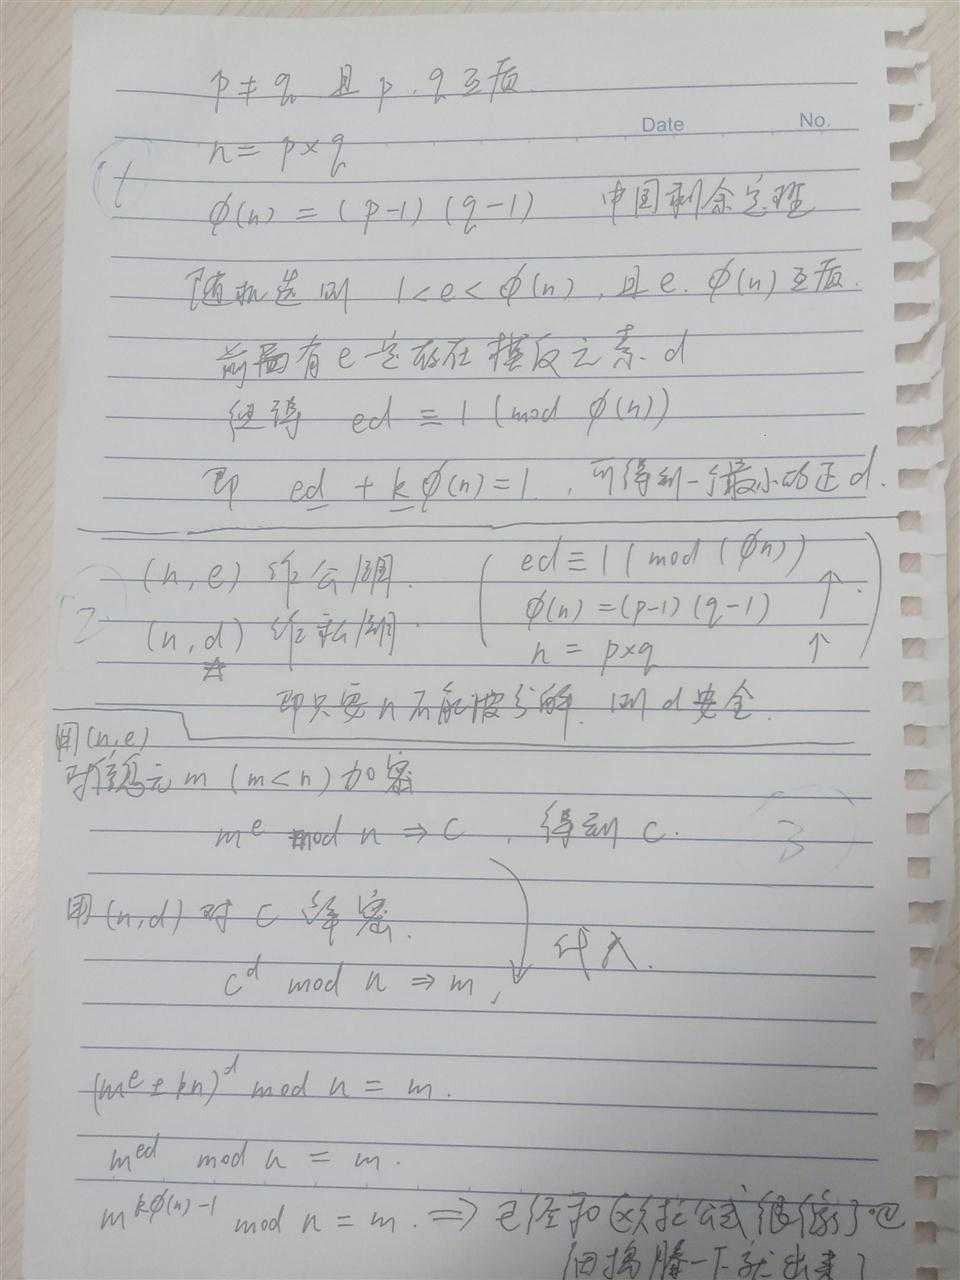 p ≠ q 且 p . q 互质
Date No.
n = p×q
1
φ(n) = (p-1) (q-1) 中国剩余定理
随机选则 1<e<φ(n) , 且 e. φ(n) 互质.
有 e 定存在模反元素 d
ed ≡ 1 (mod φ(n))
即 ed + kφ(n)=1 , 可得到一个最小的正 d.
(n, e) 作公钥.
2
(n, d) 作私钥.
( ed ≡ 1 ( mod (φn) ) ↑.
φ(n) = (p-1) (q-1)
n = p×q ↑ )
即只要 n 不能被分解. 则 d 安全.
用(n,e)
对 元 m (m<n) 加密
m^e mod n ⇒ C , 得到 C.
3
用 (n,d) 对 C 解密.
代入.
c^d mod n ⇒ m,
(m^e ± kn)^d mod n = m.
m^ed mod n = m.
m^kφ(n)-1 mod n = m. ⇒ 已经和欧拉公式很像了吧
腾一下就出来了